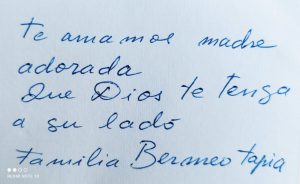 te amamos madre
adorada
Que Dios te tenga
a su lado
Familia Bermeo tapia